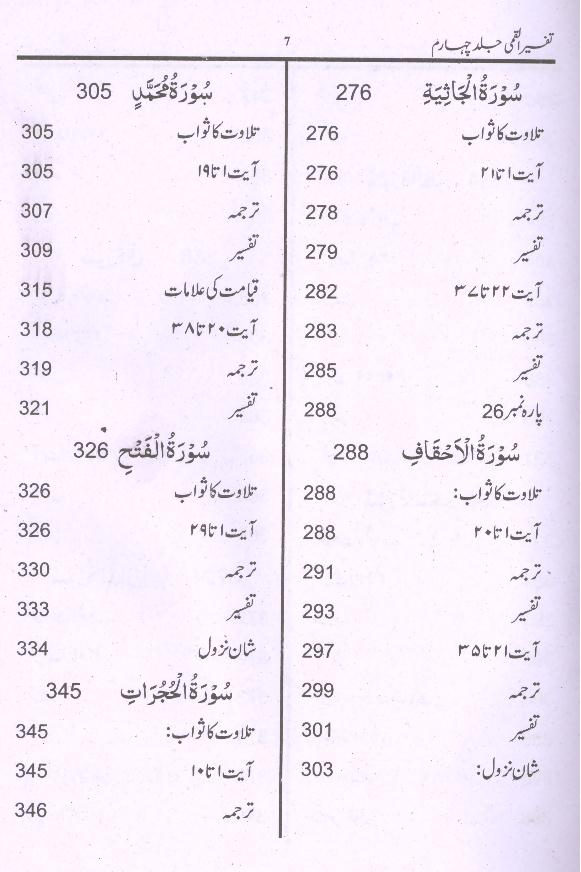 تفسیر القمی جلد چہارم
7
سُوْرَةُ الْجَاثِيَةِ 276
تلاوت کا ثواب 276
آیت ۱ تا ۲۱ 276
ترجمہ 278
تفسیر 279
آیت ۲۲ تا ۳۷ 282
ترجمہ 283
تفسیر 285
پارہ نمبر 26 288
سُوْرَةُ الْاَحْقَافِ 288
تلاوت کا ثواب: 288
آیت ۱ تا ۲۰ 288
ترجمہ 291
تفسیر 293
آیت ۲۱ تا ۳۵ 297
ترجمہ 299
تفسیر 301
شان نزول: 303
سُوْرَةُ مُحَمَّدٍ 305
تلاوت کا ثواب 305
آیت ۱ تا ۱۹ 305
ترجمہ 307
تفسیر 309
قیامت کی علامات 315
آیت ۲۰ تا ۳۸ 318
ترجمہ 319
تفسیر 321
سُوْرَةُ الْفَتْحِ 326
تلاوت کا ثواب 326
آیت ۱ تا ۲۹ 326
ترجمہ 330
تفسیر 333
شان نزول 334
سُوْرَةُ الْحُجُرَاتِ 345
تلاوت کا ثواب: 345
آیت ۱ تا ۱۰ 345
ترجمہ 346